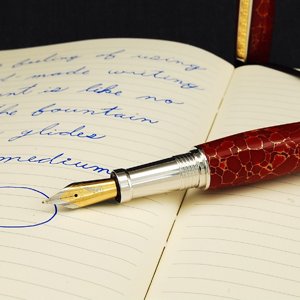 feeling of using
made writing
is like no
the fountain
glides
medium